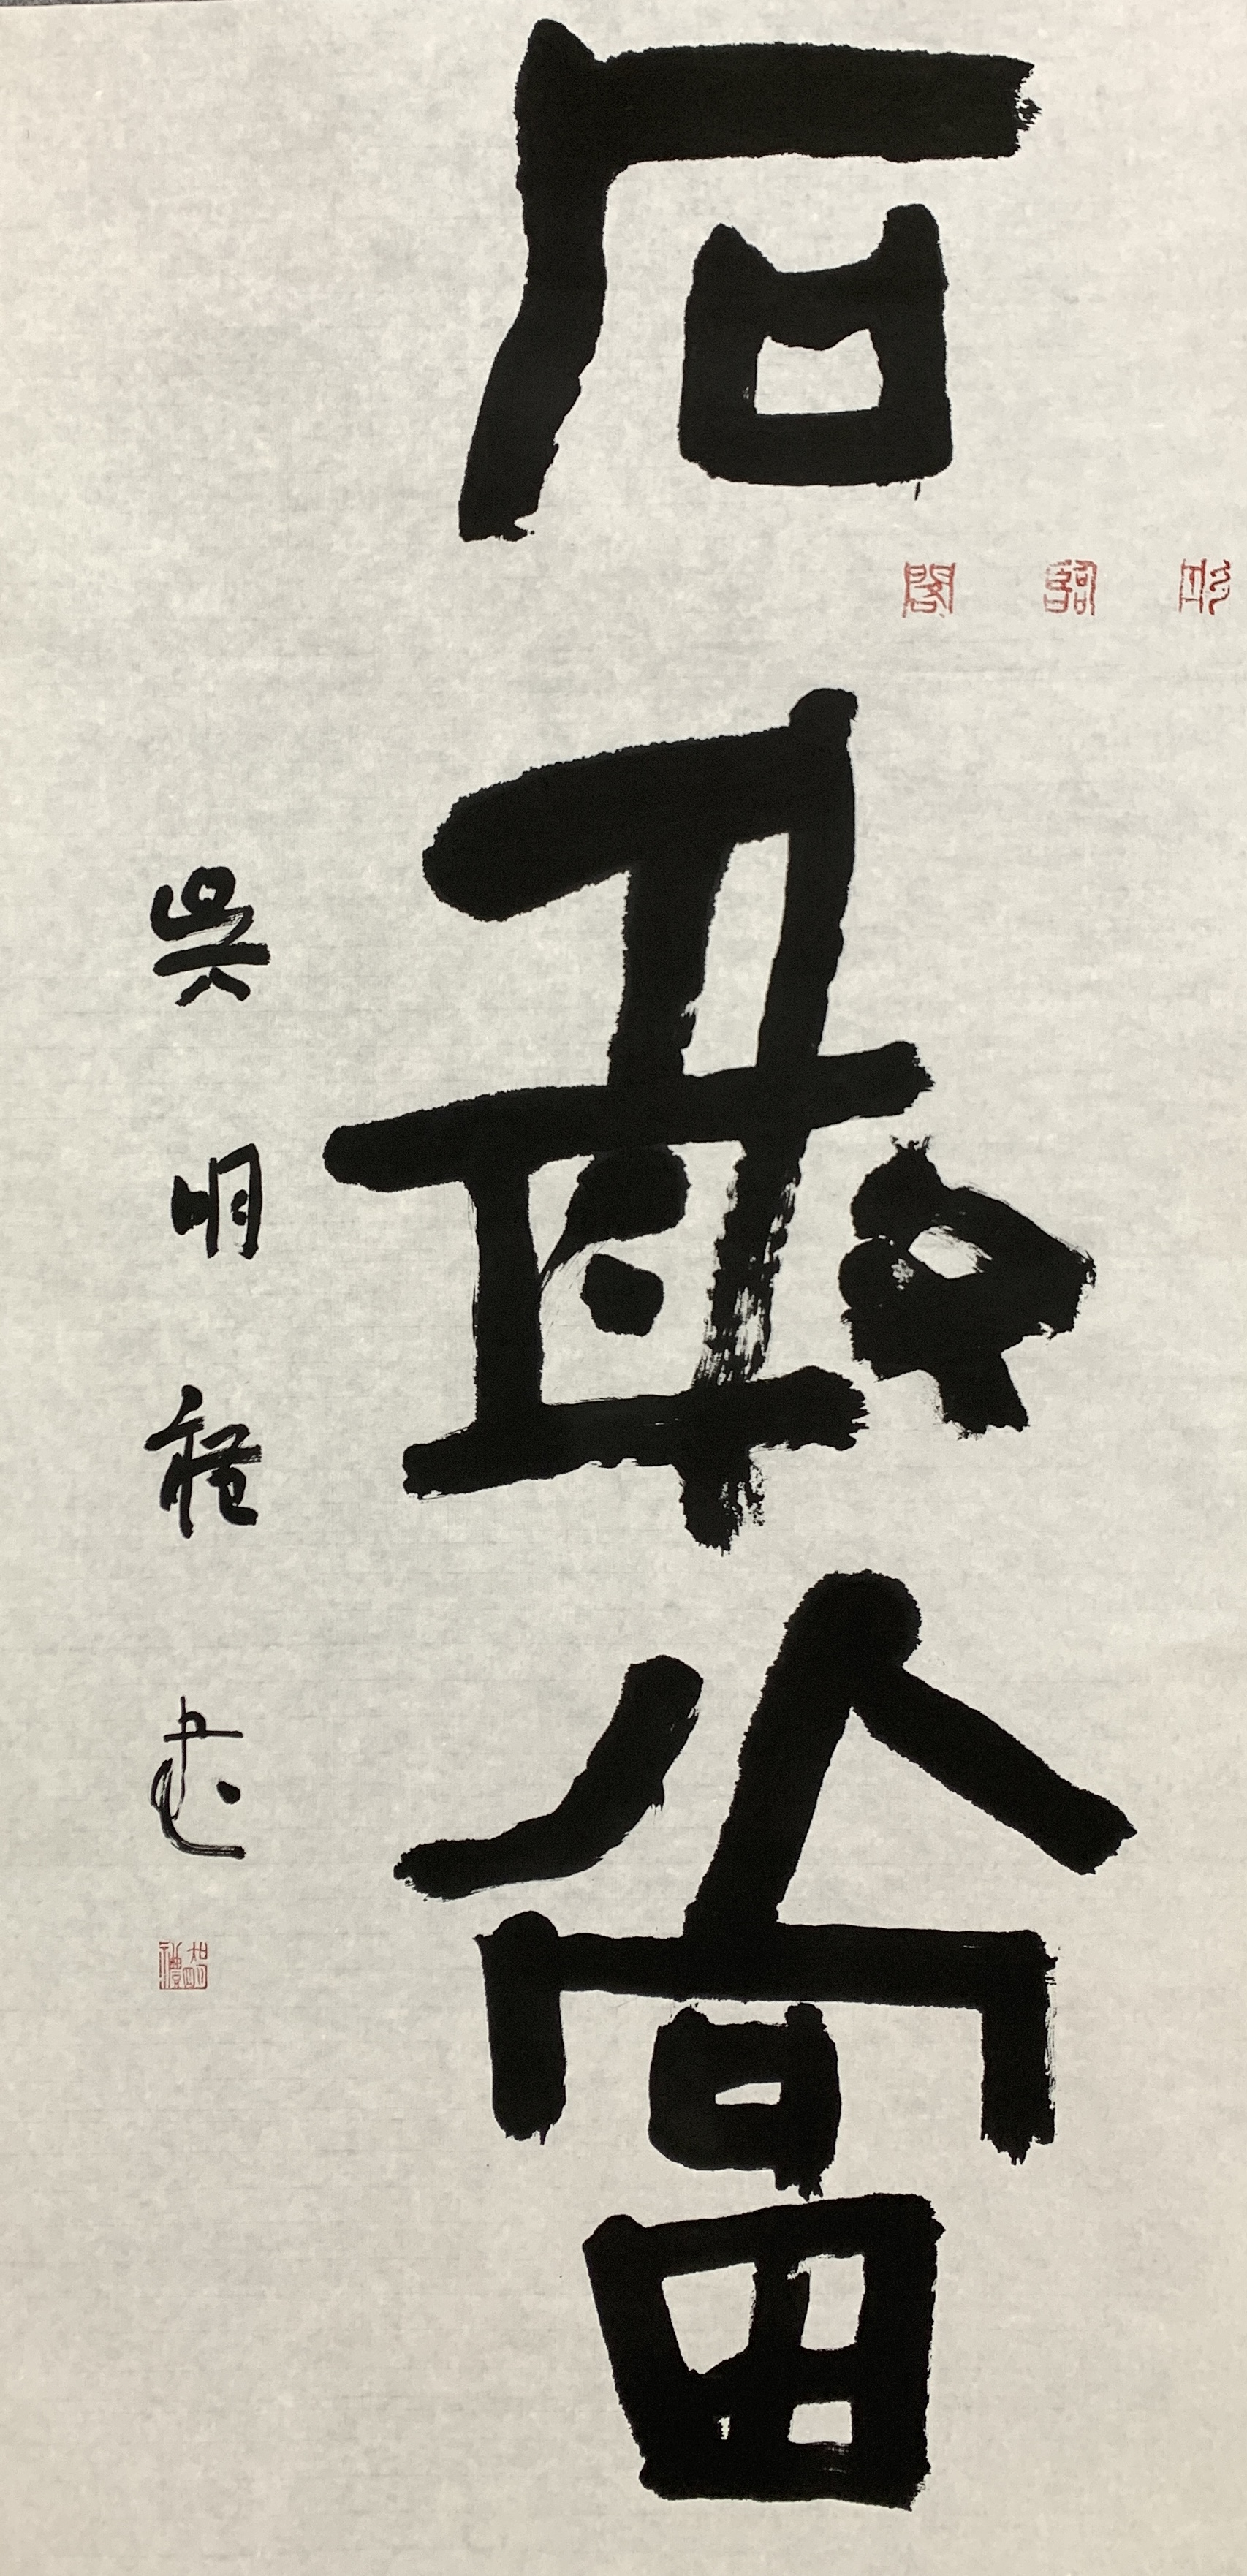 石敢當
吳明書